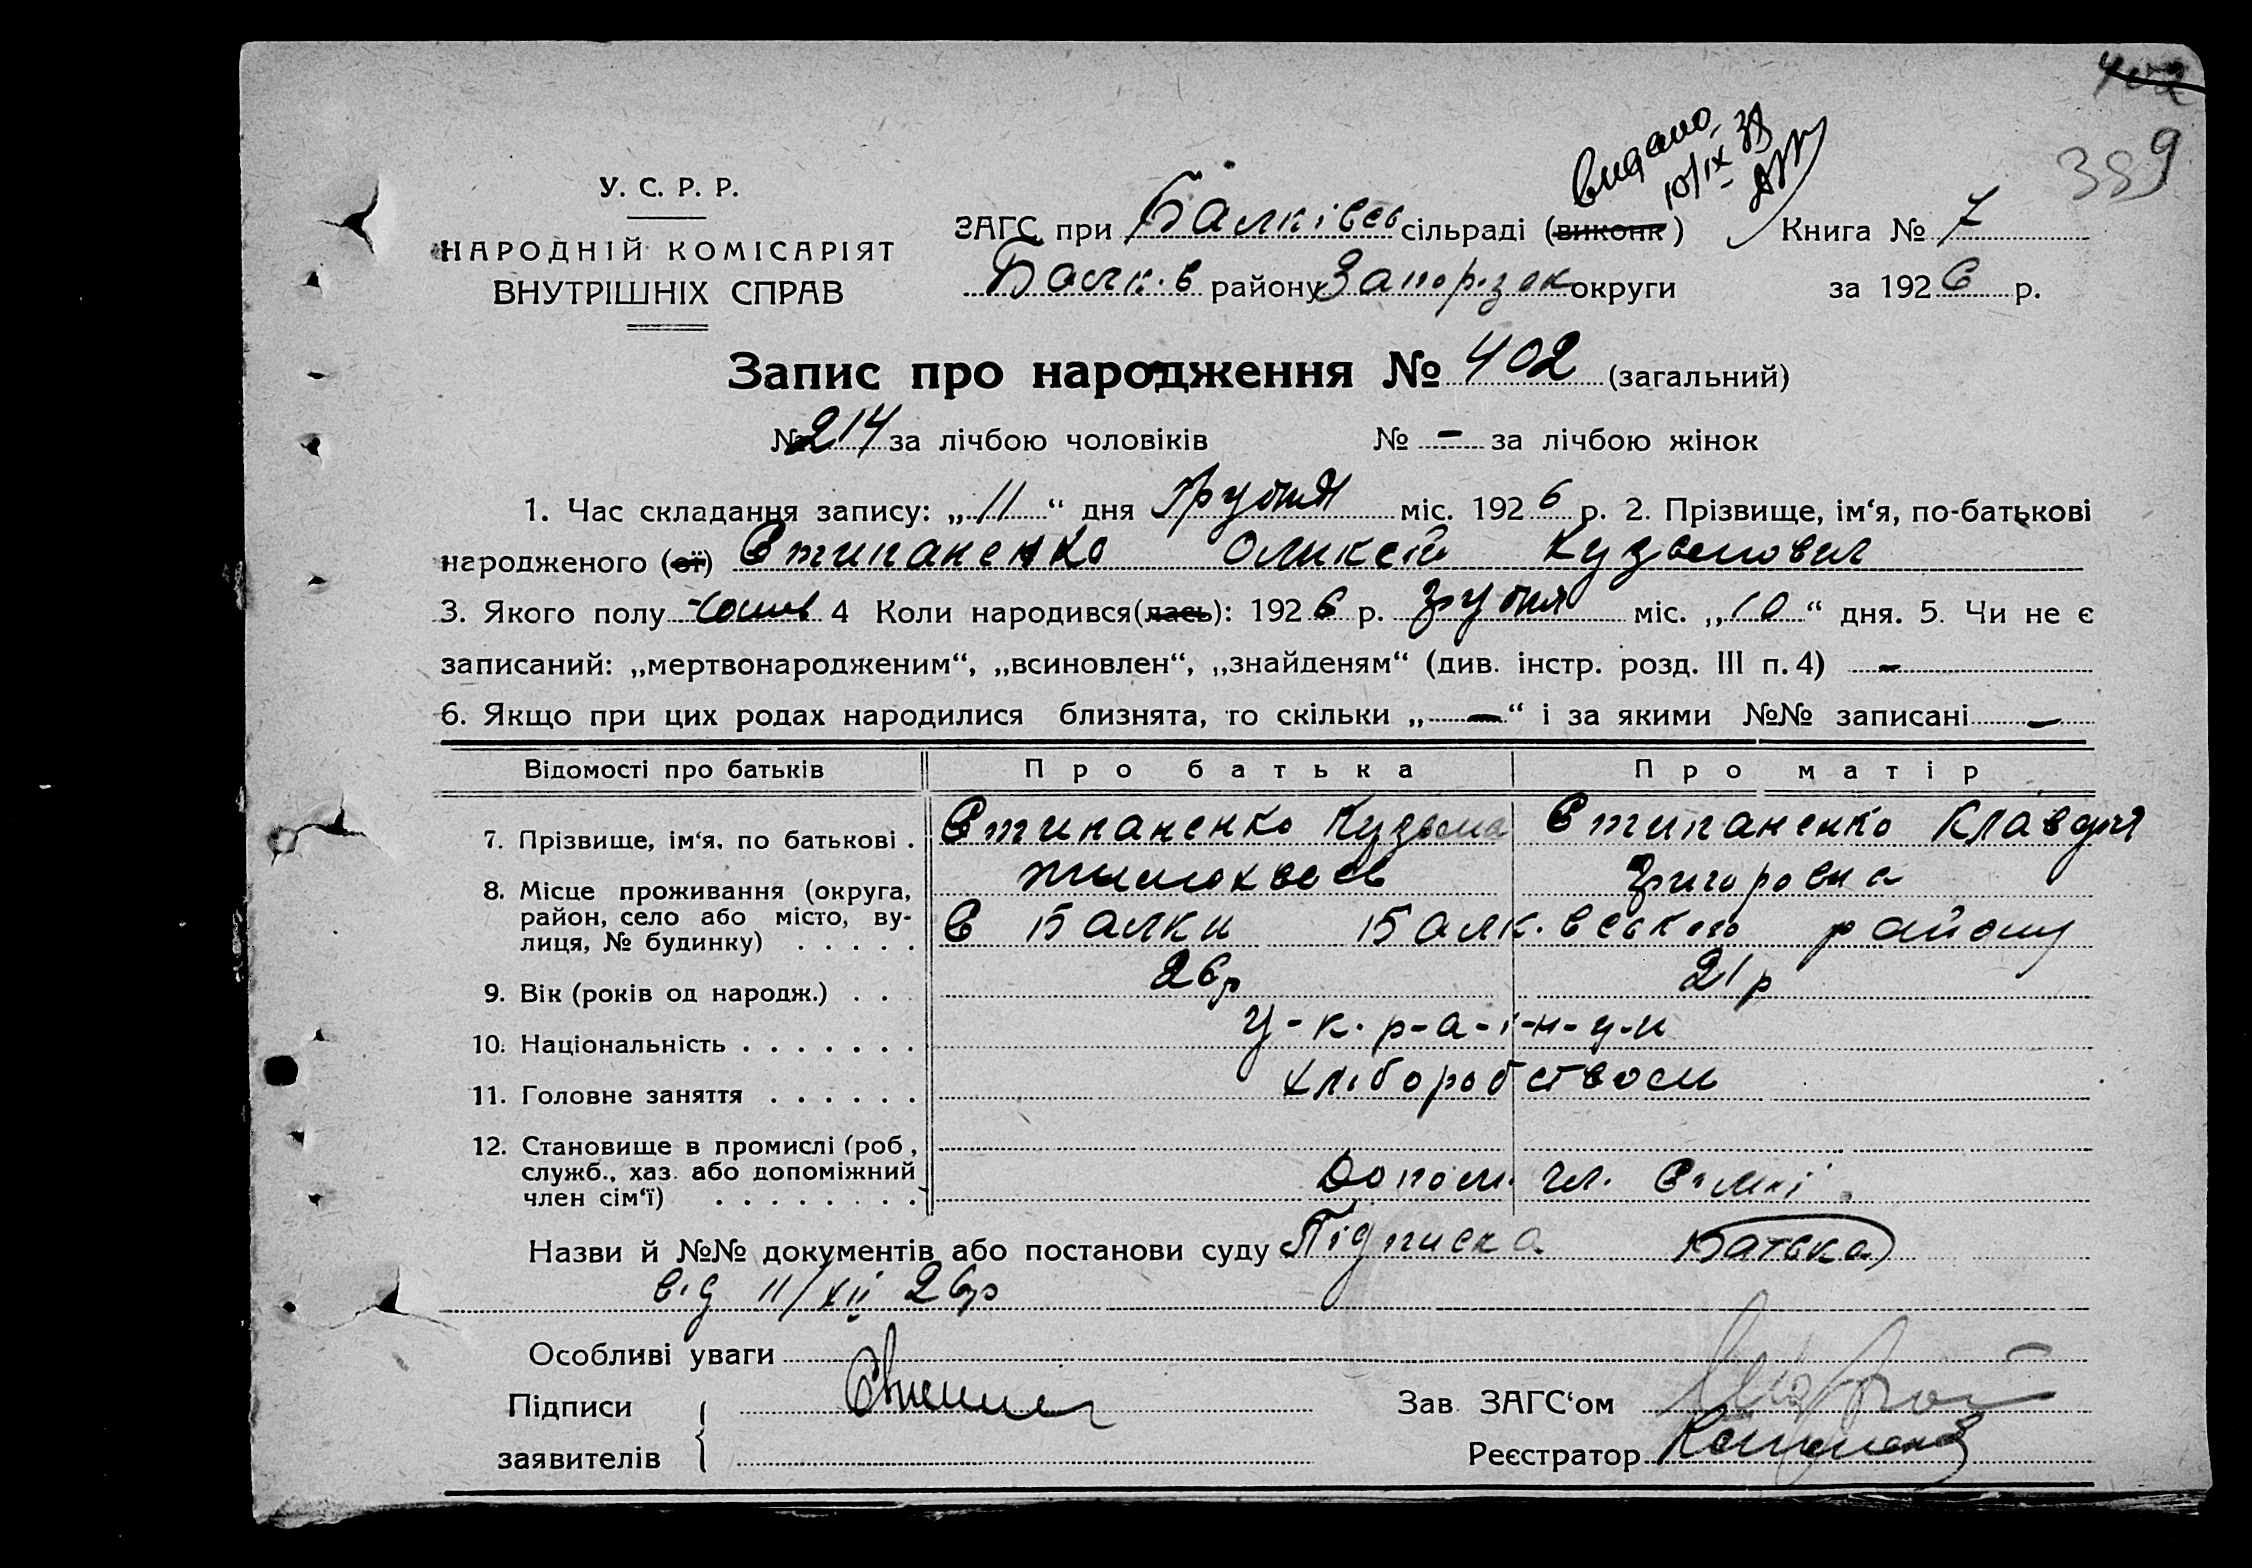 402
389
видано
10/IX 38
У. С. Р. Р.
НАРОДНІЙ КОМІСАРІЯТ
ВНУТРІШНІХ СПРАВ
ЗАГС при Балківсь сільраді (виконк) Книга № 7
Балк.в району Запорізок округи за 1926 р.
Запис про народження № 402 (загальний)
№ 214 за лічбою чоловіків № – за лічбою жінок
1. Час складання запису: „11“ дня Грудня міс. 1926 р. 2. Прізвище, ім‘я, по-батькові
народженого (ої) Стипаненко Оликсій Кузьмович
3. Якого полу чолов 4 Коли народився(лась): 1926 р. грудня міс. „10“ дня. 5. Чи не є
записаний: „мертвонародженим“, „всиновлен“, „знайденям“ (див. інстр. розд. III п. 4) –
6. Якщо при цих родах народилися близнята, то скільки „–“ і за якими №№ записані –
Відомості про батьків Про батька Про матір
7. Прізвище, ім‘я, по батькові . Стипаненко Кузьма Стипаненко Клавдія
Григоровна
8. Місце проживання (округа,
район, село або місто, ву-
лиця, № будинку) . . . . . С Балки Балк.вського району
9. Вік (років од народж.) . . 26р 21р
10. Національність . . . . . . . у-к.р-а-ї-н-ц-и
11. Головне заняття . . . . . . хліборобством
12. Становище в промислі (роб,
служб., хаз. або допоміжний
член сім‘ї) . . . . . . . . Допом. чл. сімиї
Назви й №№ документів або постанови суду Підписка Батька
від 11/XII 26р
Особливі уваги
Підписи
заявителів
Зав. ЗАГС‘ом
Реєстратор